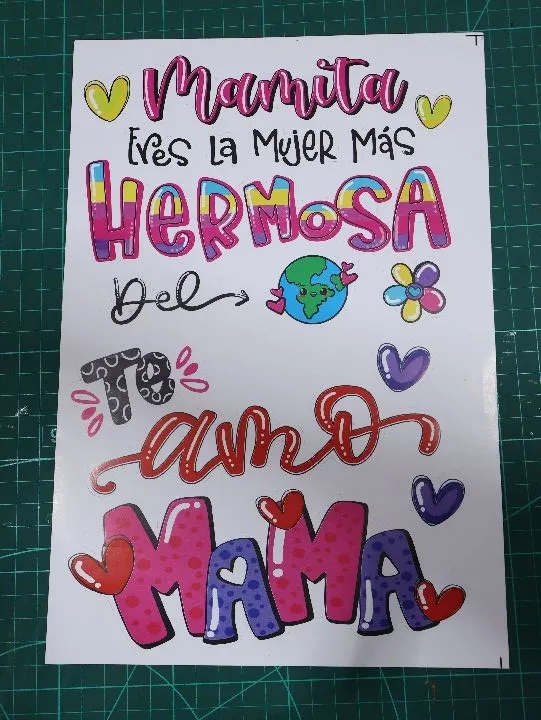 Mamita
Eres La Mujer Más
HeRMoSA
Del
Te
amo
MaMa